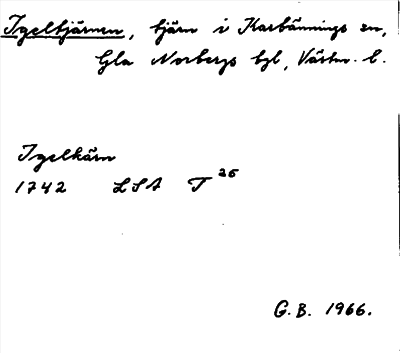 Igeltjärnen, tjärn i Karbännings sn,
Gla Norbergs bgl, Västm. l.
Igelkärn
1742 LSA T 26
G.B. 1966.